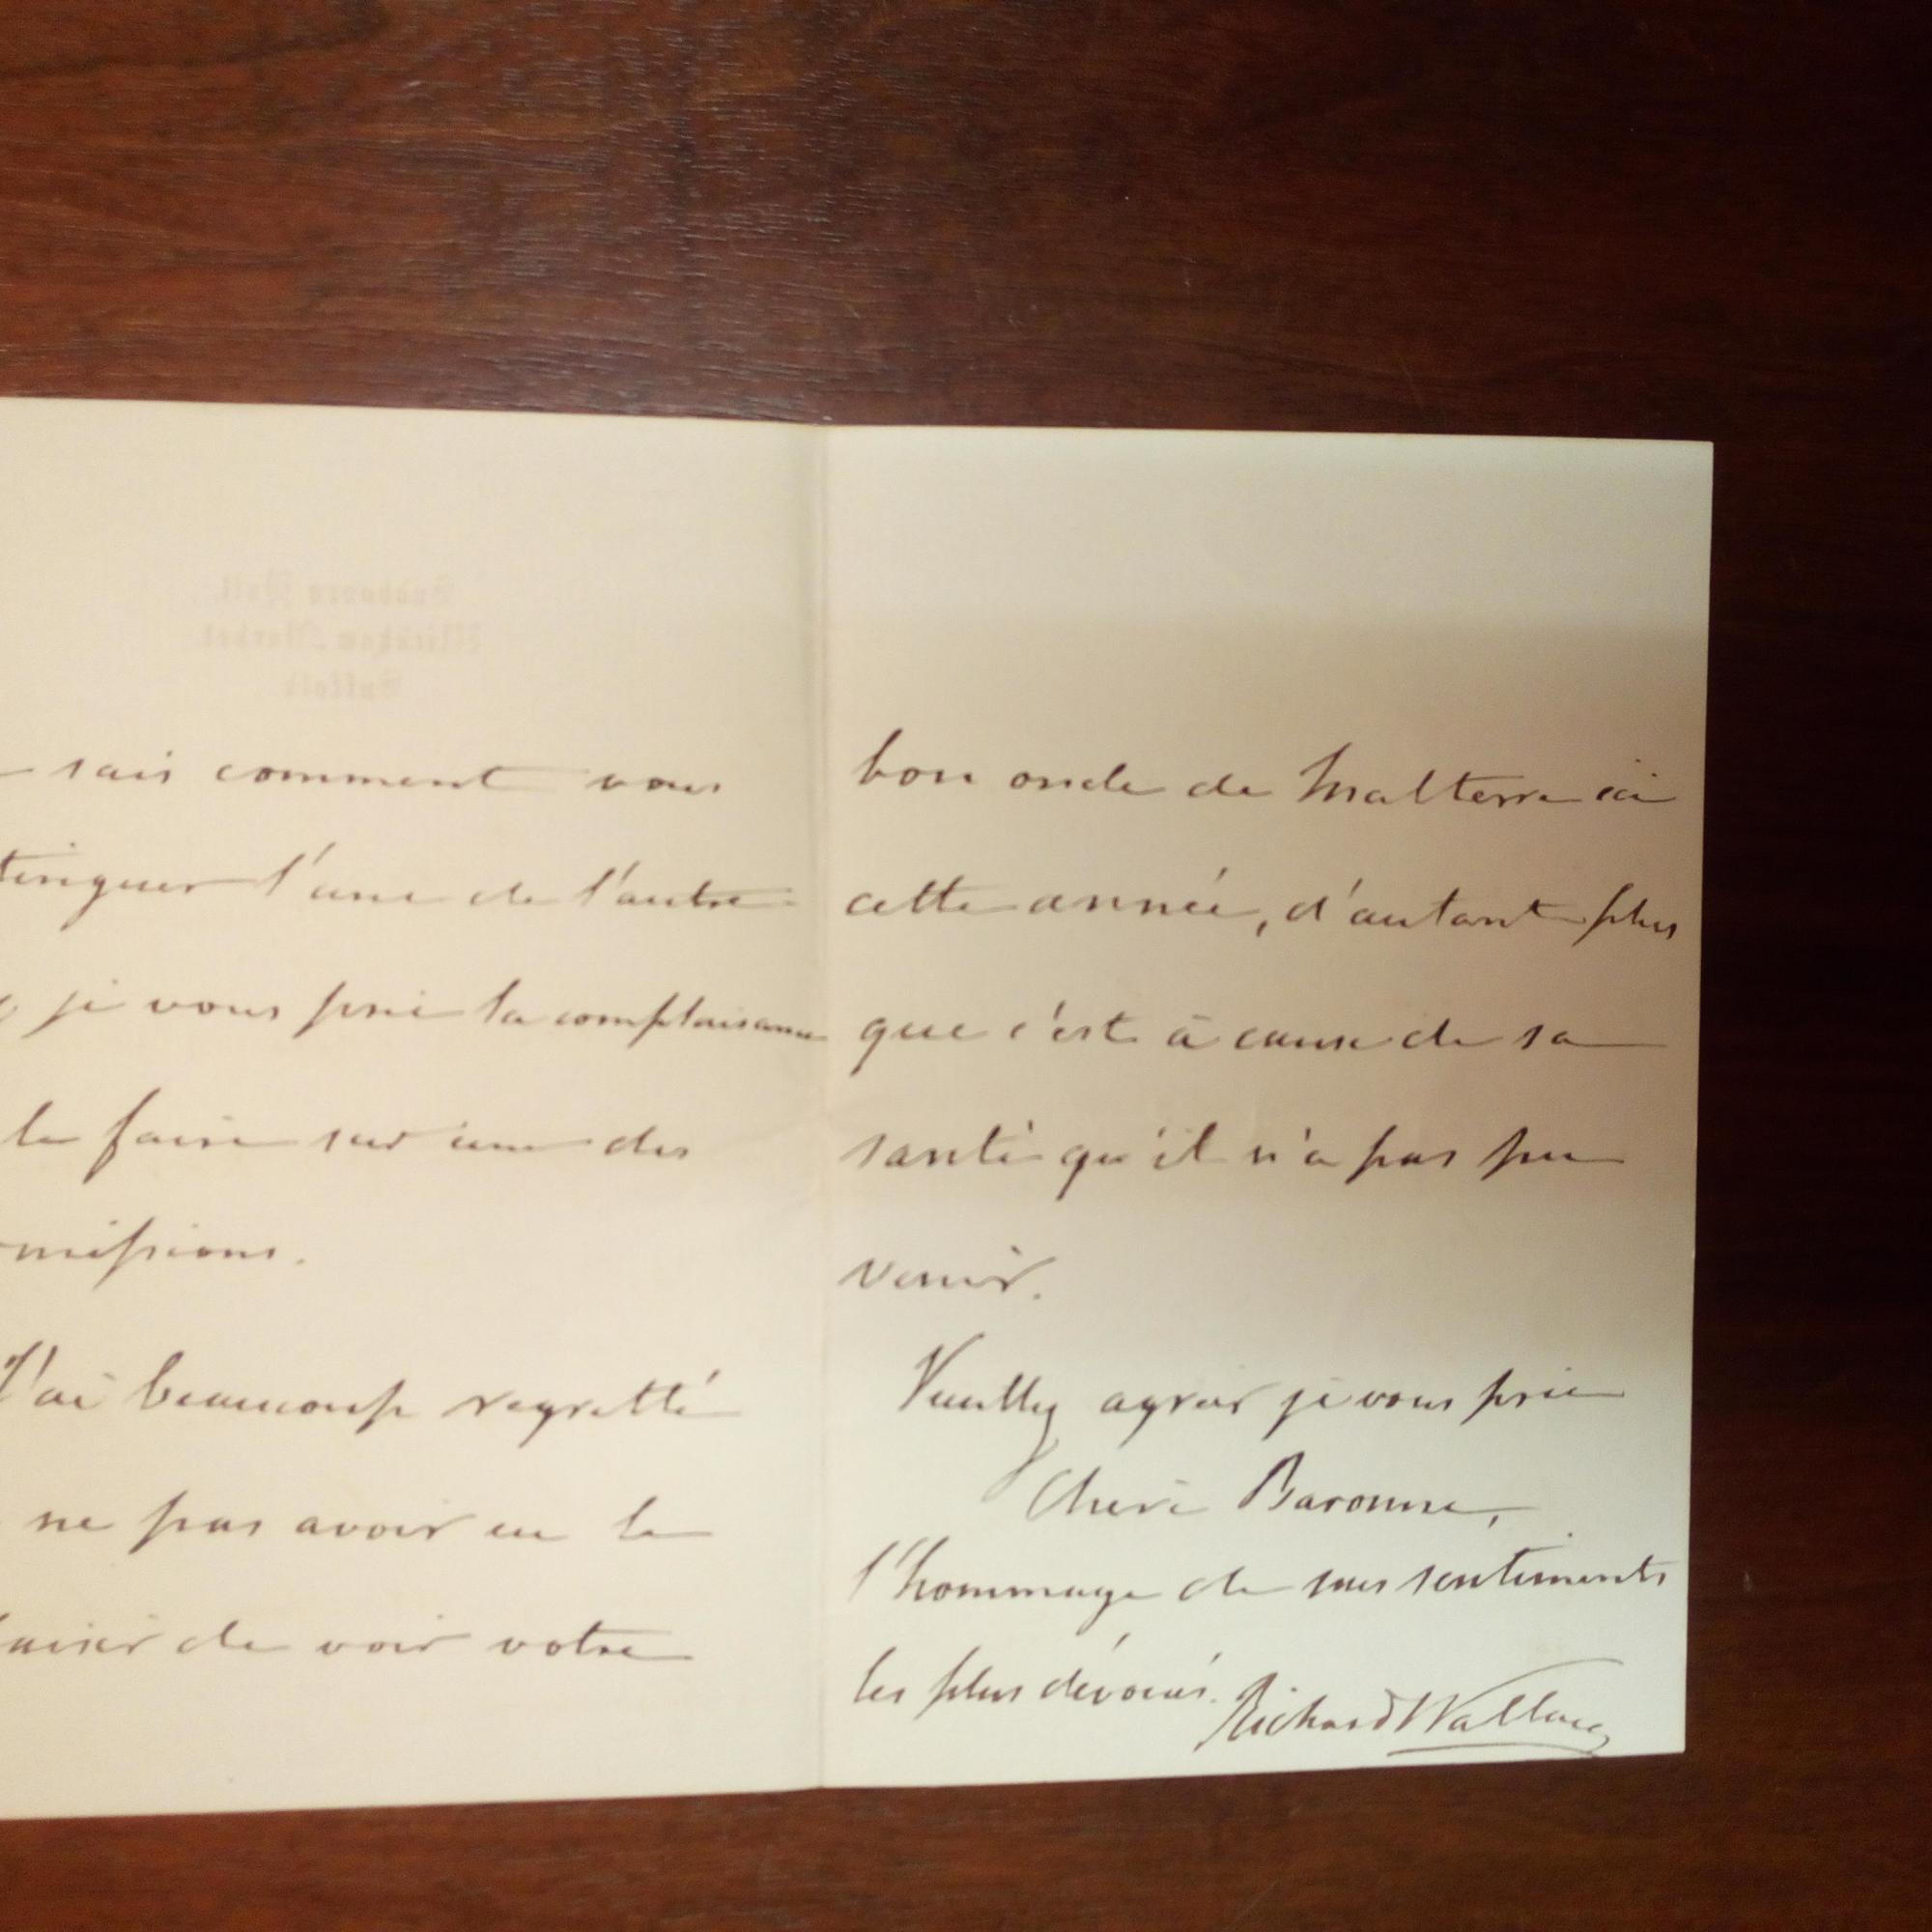 Sudbourn Hall.
Wickham Market
Suffolk
sais comment vous
tinguer l'une de l'autre
je vous prie la complaisance
le faire sur une des
missions.
J'ai beaucoup regretté
ne pas avoir eu le
laisir de voir votre
bon oncle de Malterre ici
cette année, d'autant plus
que c'est à cause de sa
santé qu'il n'a pas pu
venir.
Veuillez agréer je vous prie
Chère Baronne,
l'hommage de mes sentiments
les plus dévoués.
Richard Wallace